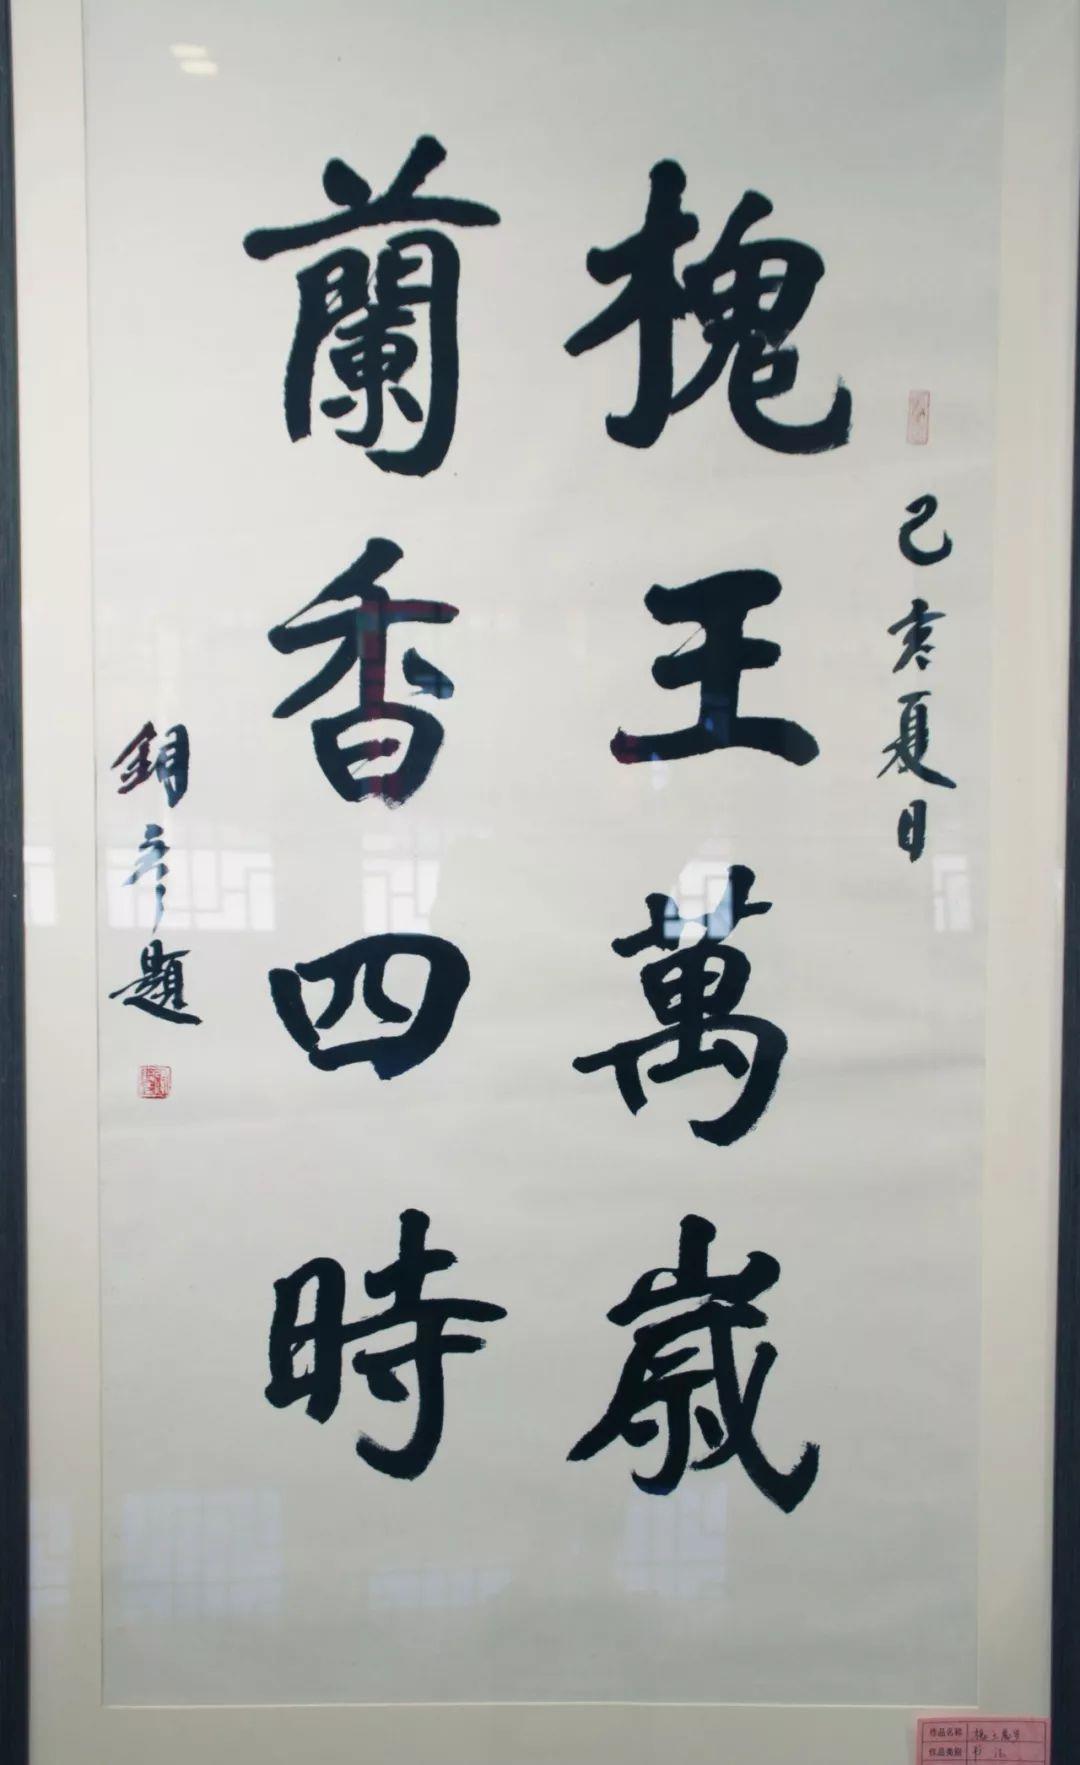 己亥夏日
槐王萬歲
蘭香四時
銅彥題
作品名称 槐王萬岁
作品类别 书法